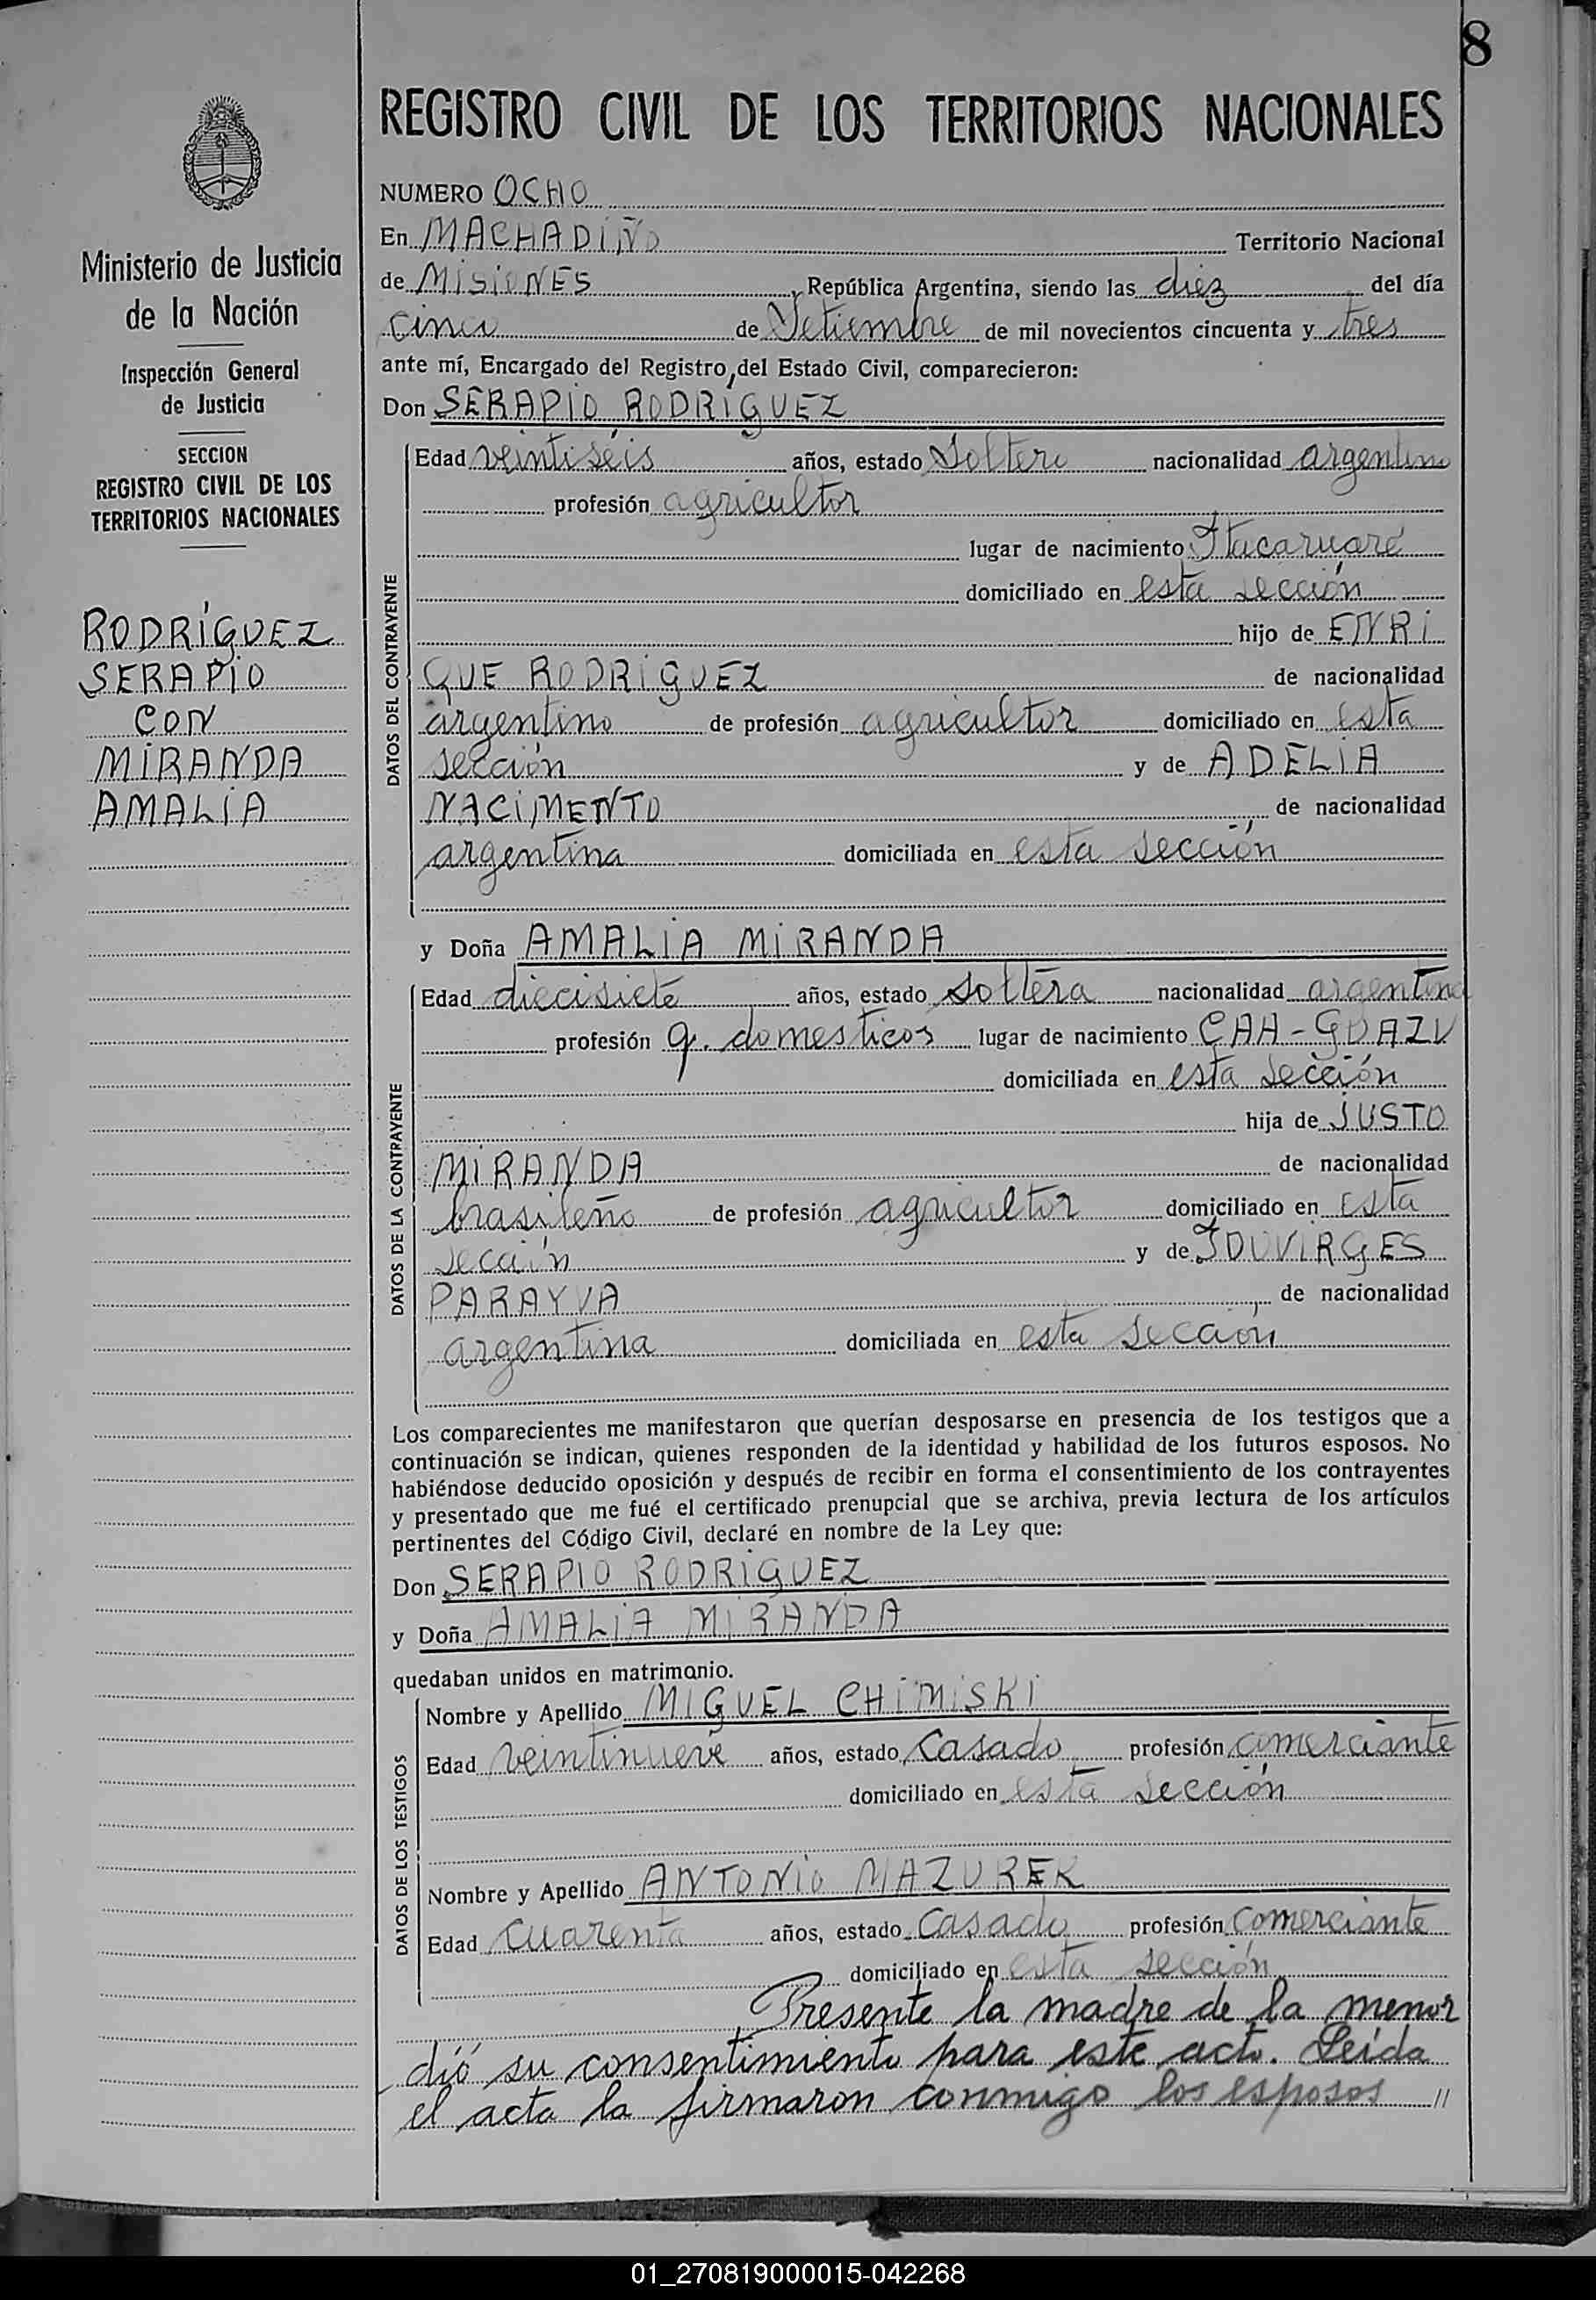 8
REGISTRO CIVIL DE LOS TERRITORIOS NACIONALES
NUMERO OCHO
En MACHADIÑO Territorio Nacional
de MISIONES, República Argentina, siendo las diez del día
cinco de Setiembre de mil novecientos cincuenta y tres
ante mí, Encargado del Registro del Estado Civil, comparecieron:
Don SERAPIO RODRÍGUEZ
Edad veintiséis años, estado Soltero nacionalidad argentino
profesión agricultor
lugar de nacimiento Itacaruaré
domiciliado en esta sección
hijo de ENRI
QUE RODRÍGUEZ de nacionalidad
argentino de profesión agricultor domiciliado en esta
sección y de ADELIA
NACIMENTO de nacionalidad
argentina domiciliada en esta sección
y Doña AMALIA MIRANDA
Edad diecisiete años, estado soltera nacionalidad argentina
profesión q. domesticos lugar de nacimiento CAA-GUAZU
domiciliada en esta sección
hija de JUSTO
MIRANDA de nacionalidad
brasileño de profesión agricultor domiciliado en esta
sección y de IDUVIRGES
PARAYVA de nacionalidad
argentina domiciliada en esta sección
Los comparecientes me manifestaron que querían desposarse en presencia de los testigos que a
continuación se indican, quienes responden de la identidad y habilidad de los futuros esposos. No
habiéndose deducido oposición y después de recibir en forma el consentimiento de los contrayentes
y presentado que me fué el certificado prenupcial que se archiva, previa lectura de los artículos
pertinentes del Código Civil, declaré en nombre de la Ley que:
Don SERAPIO RODRÍGUEZ
y Doña AMALIA MIRANDA
quedaban unidos en matrimonio.
Nombre y Apellido MIGUEL CHIMISKI
Edad veintinueve años, estado Casado profesión comerciante
domiciliado en esta sección
Nombre y Apellido ANTONIO MAZUREK
Edad cuarenta años, estado Casado profesión comerciante
domiciliado en esta sección
Presente la madre de la menor
dió su consentimiento para este acto. Leída
el acta la firmaron conmigo los esposos //
DATOS DEL CONTRAYENTE
DATOS DE LA CONTRAYENTE
DATOS DE LOS TESTIGOS
Ministerio de Justicia
de la Nación
Inspección General
de Justicia
SECCION
REGISTRO CIVIL DE LOS
TERRITORIOS NACIONALES
RODRÍGUEZ
SERAPIO
CON
MIRANDA
AMALIA
01_270819000015-042268